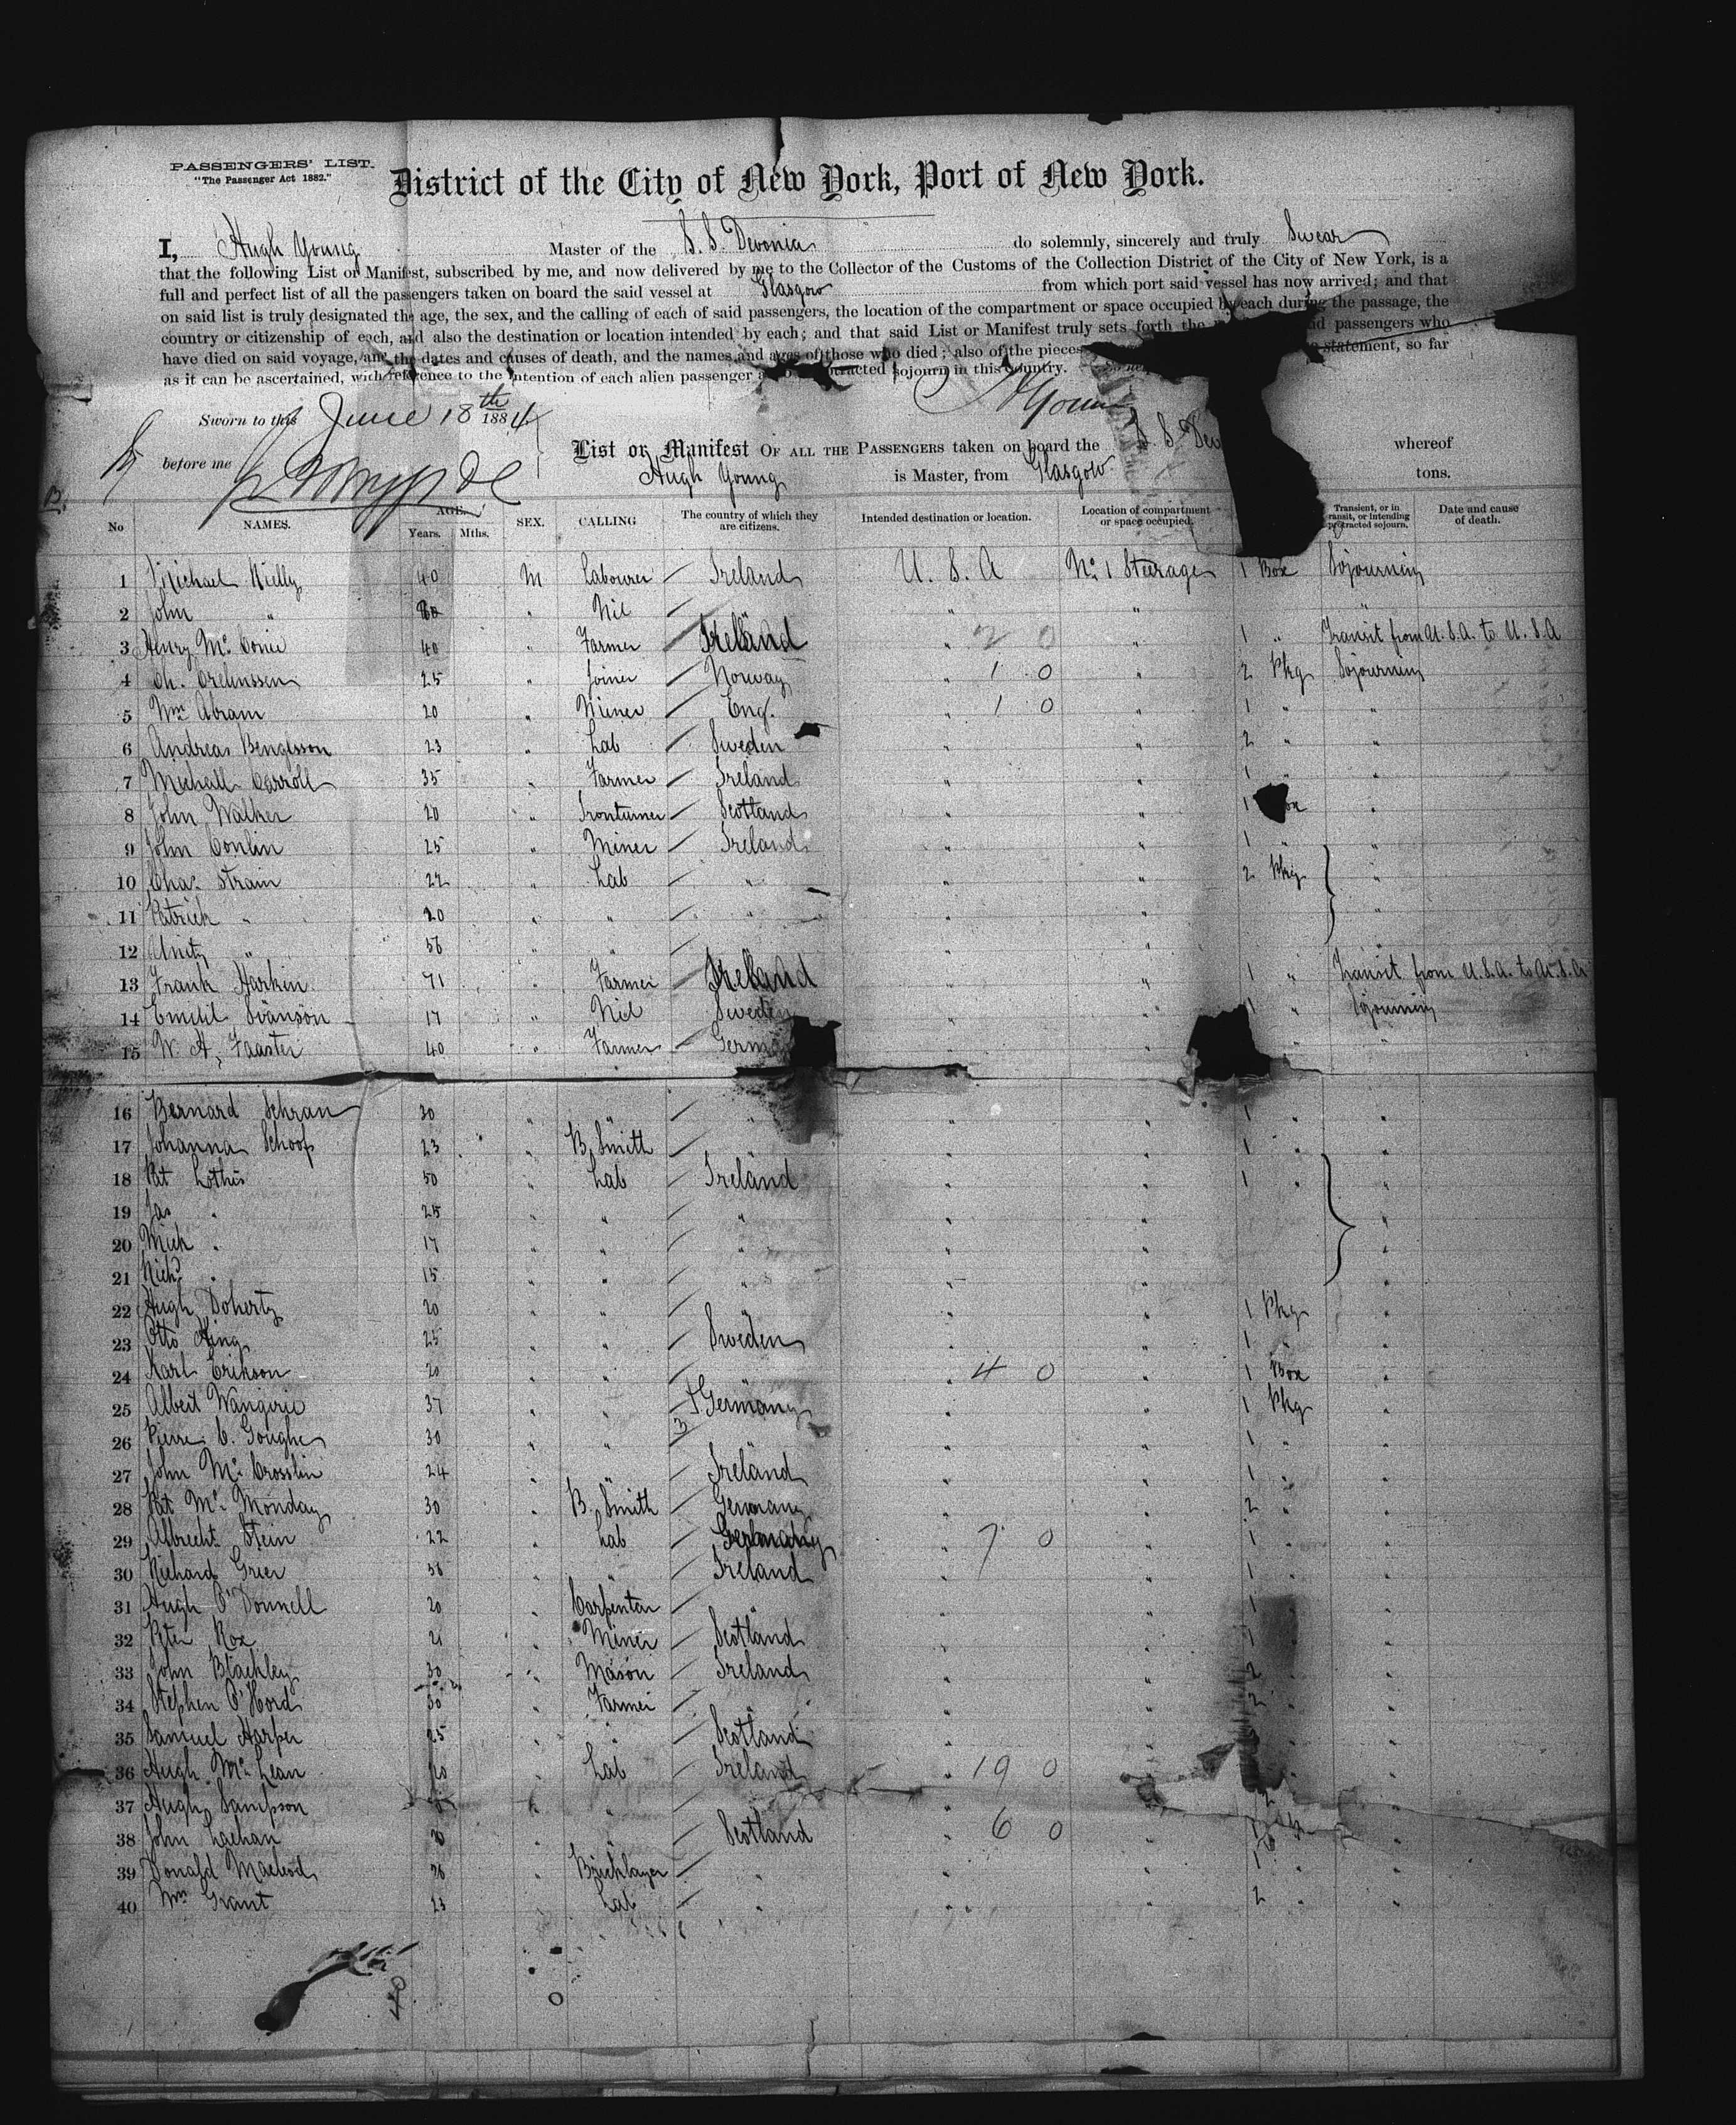 PASSENGERS' LIST.
"The Passenger Act 1882."
District of the City of New York, Port of New York.
I, Hugh Young Master of the S. S. Devonia do solemnly, sincerely and truly Swear
that the following List or Manifest, subscribed by me, and now delivered by me to the Collector of the Customs of the Collection District of the City of New York, is a
full and perfect list of all the passengers taken on board the said vessel at Glasgow from which port said vessel has now arrived; and that
on said list is truly designated the age, the sex, and the calling of each of said passengers, the location of the compartment or space occupied by each during the passage, the
country or citizenship of each, and also the destination or location intended by each; and that said List or Manifest truly sets forth the passengers who
have died on said voyage, and the dates and causes of death, and the names and ages of those who died; also of the pieces statement, so far
as it can be ascertained, with reference to the intention of each alien passenger sojourn in this Country.
Sworn to this June 18th 1884 H Young
before me
List or Manifest OF ALL THE PASSENGERS taken on board the S. S. Dev whereof
Hugh Young is Master, from Glasgow tons.
No NAMES. AGE. Years. Mths. SEX. CALLING The country of which they are citizens. Intended destination or location. Location of compartment or space occupied. Transient, or in transit, or intending protracted sojourn. Date and cause of death.
1 Michael Kielly 40 M Labourer Ireland U. S. A No. 1 Steerage 1 Box Sojourning
2 John " " Nil " " "
3 Henry Mc 40 " Farmer Ireland " 2 0 " 1 " Transit from U.S.A. to U.S.A
4 Ch. 25 " Joiner Norway " 1 0 " 2 Pkg Sojourning
5 Wm Abram 20 " Eng. " 1 0 " 1 " "
6 Andreas Bengtsson 23 " Lab Sweden " " 2 " "
7 Michall Carroll 35 " Farmer Ireland " " 1 " "
8 John Walker 20 " Ironturner Scotland " " 1 "
9 John Conlin 25 " Miner Ireland " " 1 " "
10 Chas Strain 22 " Lab " " " 2 Pkg "
11 Patrick " 20 " " " " " "
12 " 56 " " " " " "
13 Frank Harkin 71 " Farmer Ireland " " 1 " Transit from U.S.A. to U.S.A
14 Emehl Svanson 17 " Nil Sweden " " 1 " Sojourning
15 W. A. Faaster 40 " Farmer Germ " " " "
16 Bernard Schran 30 " " " " " 1 " "
17 Johanna Schoof 23 " B. Smith " " " 1 " "
18 Pat Lothis 50 " Lab Ireland " " 1 " "
19 Jas " 25 " " " " " "
20 Mich " 17 " " " " " "
21 Richd " 15 " " " " " "
22 Hugh Doherty 20 " " " " " 1 Pkg "
23 Otto King 25 " " Sweden " " 1 " "
24 Karl Erikson 20 " " " " 4 0 " 1 Box "
25 Albert Wangirie 37 " " Germany " " 1 Pkg "
26 Pierre C. Goughe 30 " " " " " 1 " "
27 John Mc Crosslin 24 " " Ireland " " 1 " "
28 Pat Mc Monday 30 " B. Smith Germany " " 2 " "
29 Albrecht Stein 22 " Lab Germany " 7 0 " 1 " "
30 Richard Grier 56 " " Ireland " " 1 " "
31 Hugh O'Donnell 20 " Carpenter " " " 1 " "
32 Peter Rox 21 " Miner Scotland " " 1 " "
33 John Blackley 30 " Mason Ireland " " 2 " "
34 Stephen O'Hord 30 " Farmer " " " 2 " "
35 Samuel Harper 25 " " Scotland " " "
36 Hugh Mc Lean 20 " Lab Ireland " 19 0 " " "
37 Hugh Sampson " " " " " 2 "
38 John Lachan 20 " " Scotland " 6 0 " 1 "
39 Donald Macleod 26 " Bricklayer " " " 1 " "
40 Wm Grant 23 " Lab " " " 2 " "